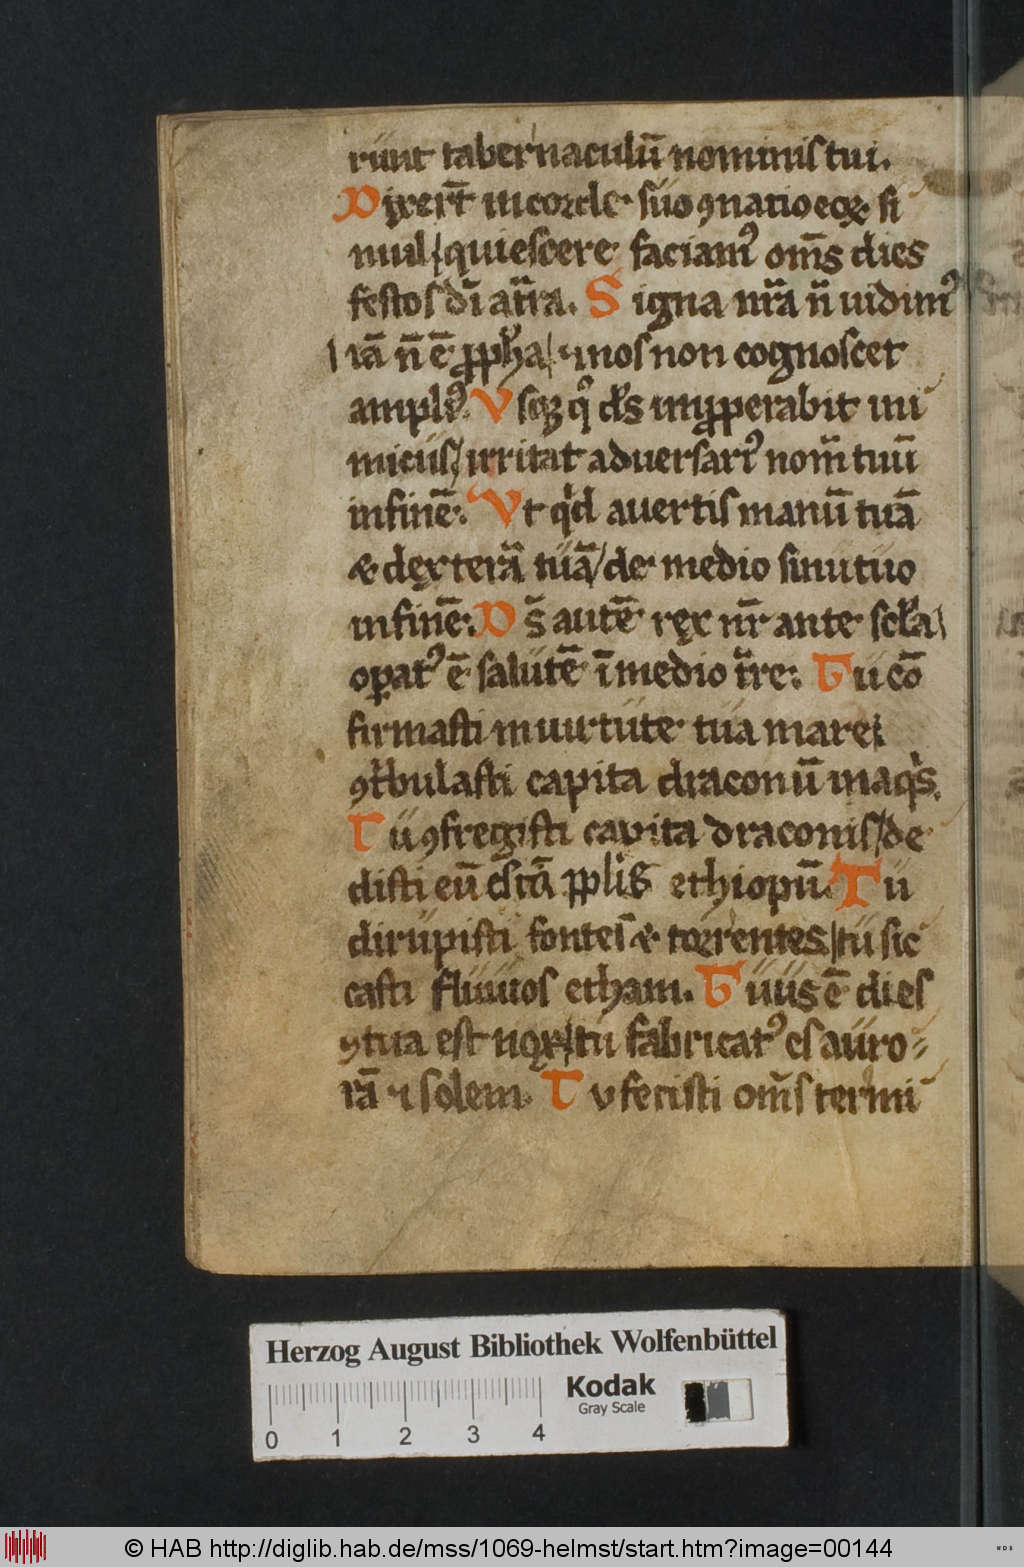 runt tabernaculū nominis tui.
Dixert̄ in corde suo ꝯnatio eoꝝ si
mul / quiescere faciamꝰ om̄s dies
festos dī a tr̄ra. Signa nr̄a n̄ uidimꝰ
iā n̄ ē ꝓpha / ⁊ nos non cognoscet
ampliꝰ. Vsqꝫ qͦ ds̄ imꝓperabit ini
micus / irritat aduersariꝰ nom̄ tuū
in finē. Vt qͥd auertis manū tuā
& dexterā tuā / de medio sinu tuo
in finē. Ds̄ autē rex nr̄ ante scl̄a
opatꝰ ē salutē ī medio tr̄re. Tu cō
firmasti in uirtute tua mare /
ꝯtͥbulasti capita draconū in aqͥs.
Tu ꝯfregisti capita draconis / de
disti eū escā pplis ethiopū. Tu
dirupisti fontes & torrentes / tu sic
casti fluuios etham. Tuus ē dies
⁊ tua est nox / tu fabricatꝰ es auro
rā ⁊ solem. Tu fecisti om̄s termi
Herzog August Bibliothek Wolfenbüttel
Kodak
Gray Scale
0 1 2 3 4
© HAB http://diglib.hab.de/mss/1069-helmst/start.htm?image=00144